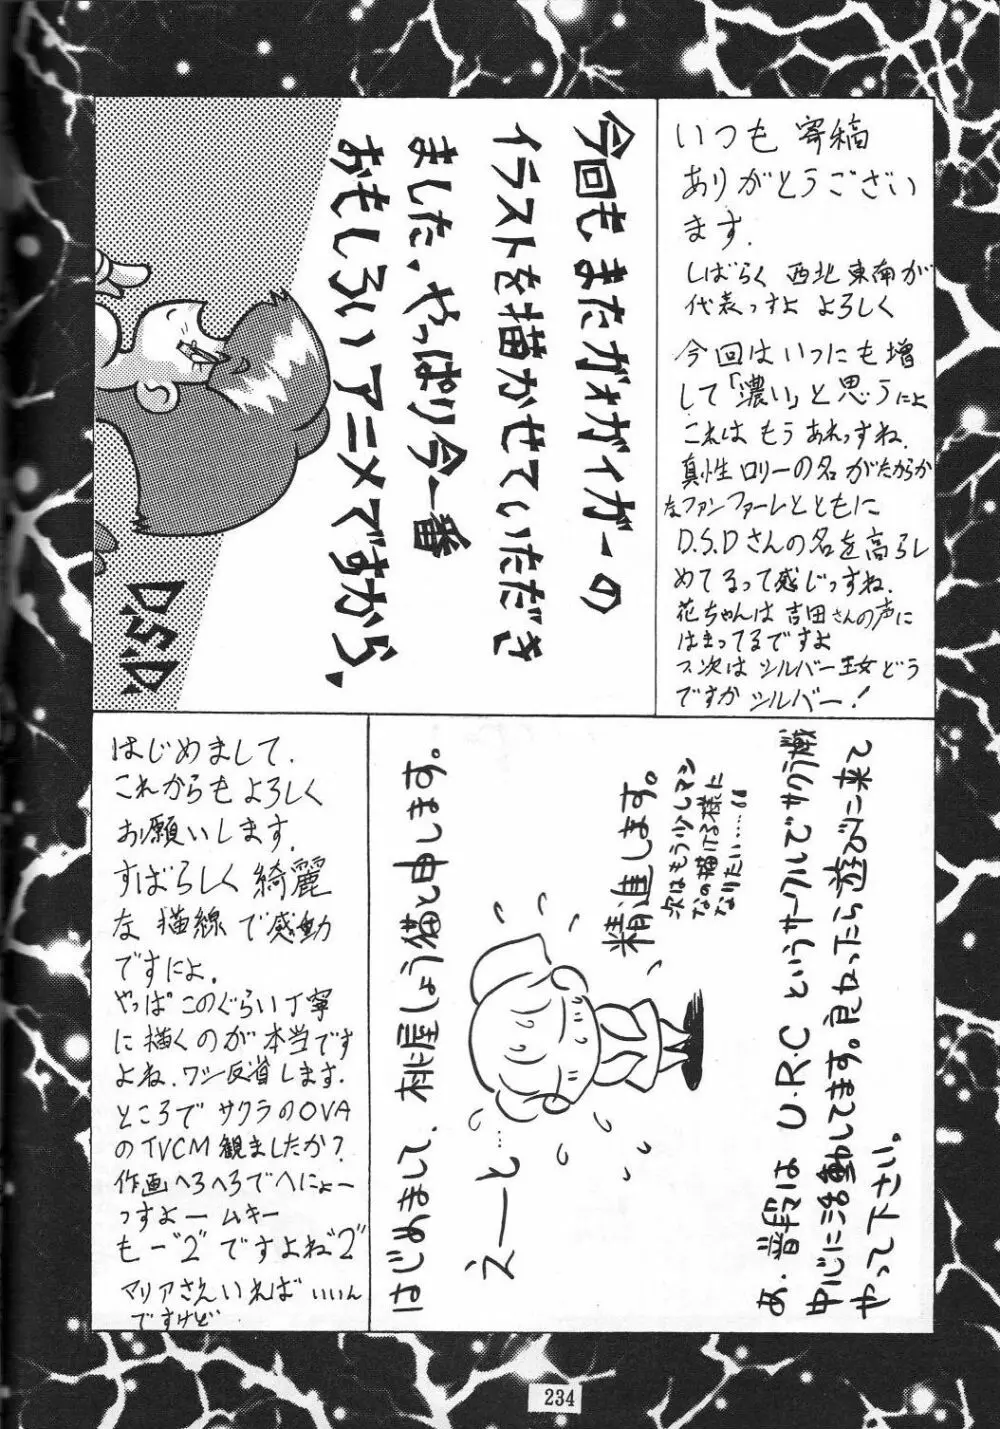 今回もまたガオガイガーの
イラストを描かせていただき
ました、やっぱり今一番
おもしろいアニメですから、
D.S.D
いつも 寄稿
ありがとうござい
ます.
しばらく 西北東南が
代表っすよ よろしく
今回はいつにも増
して「濃い」と思うによ
これは もう あれっすね.
真性ロリーの名がたからか
なファンファーレとともに
D.S.Dさんの名を高らし
めてるって感じっすね.
花ちゃんは 吉田さんの声に
はまってるですよ
次は シルバー王女どう
ですか シルバー!
はじめまして.
これからも よろしく
お願いします.
すばらしく 綺麗
な 描線で感動
ですによ.
やっぱ このぐらい丁寧
に描くのが 本当です
よね.ワシ反省します.
ところで サクラのOVA
のTVCM観ましたか?
作画へろへろでへにょー
っすよー ムキー
もー"2"ですよね"2"
マリアさえいれば いいん
ですけど
はじめまして、桃屋しょう猫と申します。
えーと…
精進します。
次はもう少しマシ
なの描ける様に
なりたい……
あ、普段は U・R・C というサークルでサクラ戦
中心に活動してます。良かったら遊びに来て
やって下さい。
234